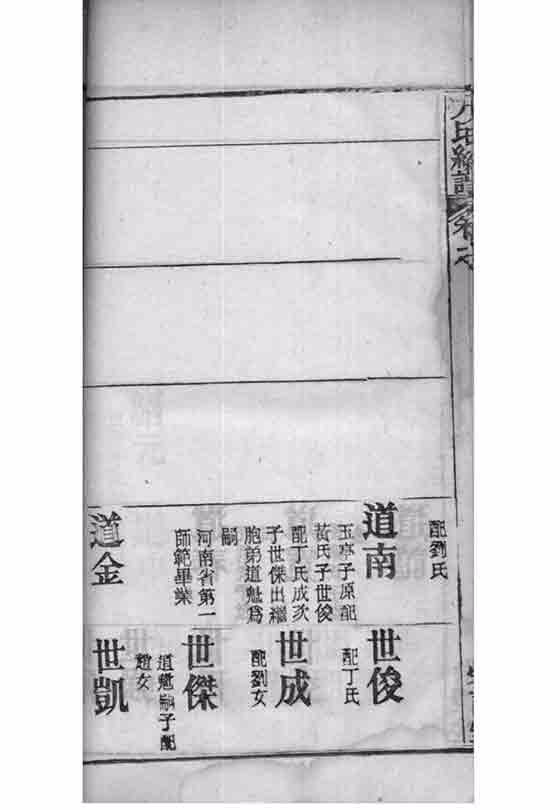 配劉氏
道南
玉亭子原配
黃氏子世俊
配丁氏成次
子世傑出繼
胞弟道魁爲
嗣
河南省第一
師範畢業
道金
世俊
配丁氏
世成
配劉女
世傑
道魁嗣子配
趙女
世凱